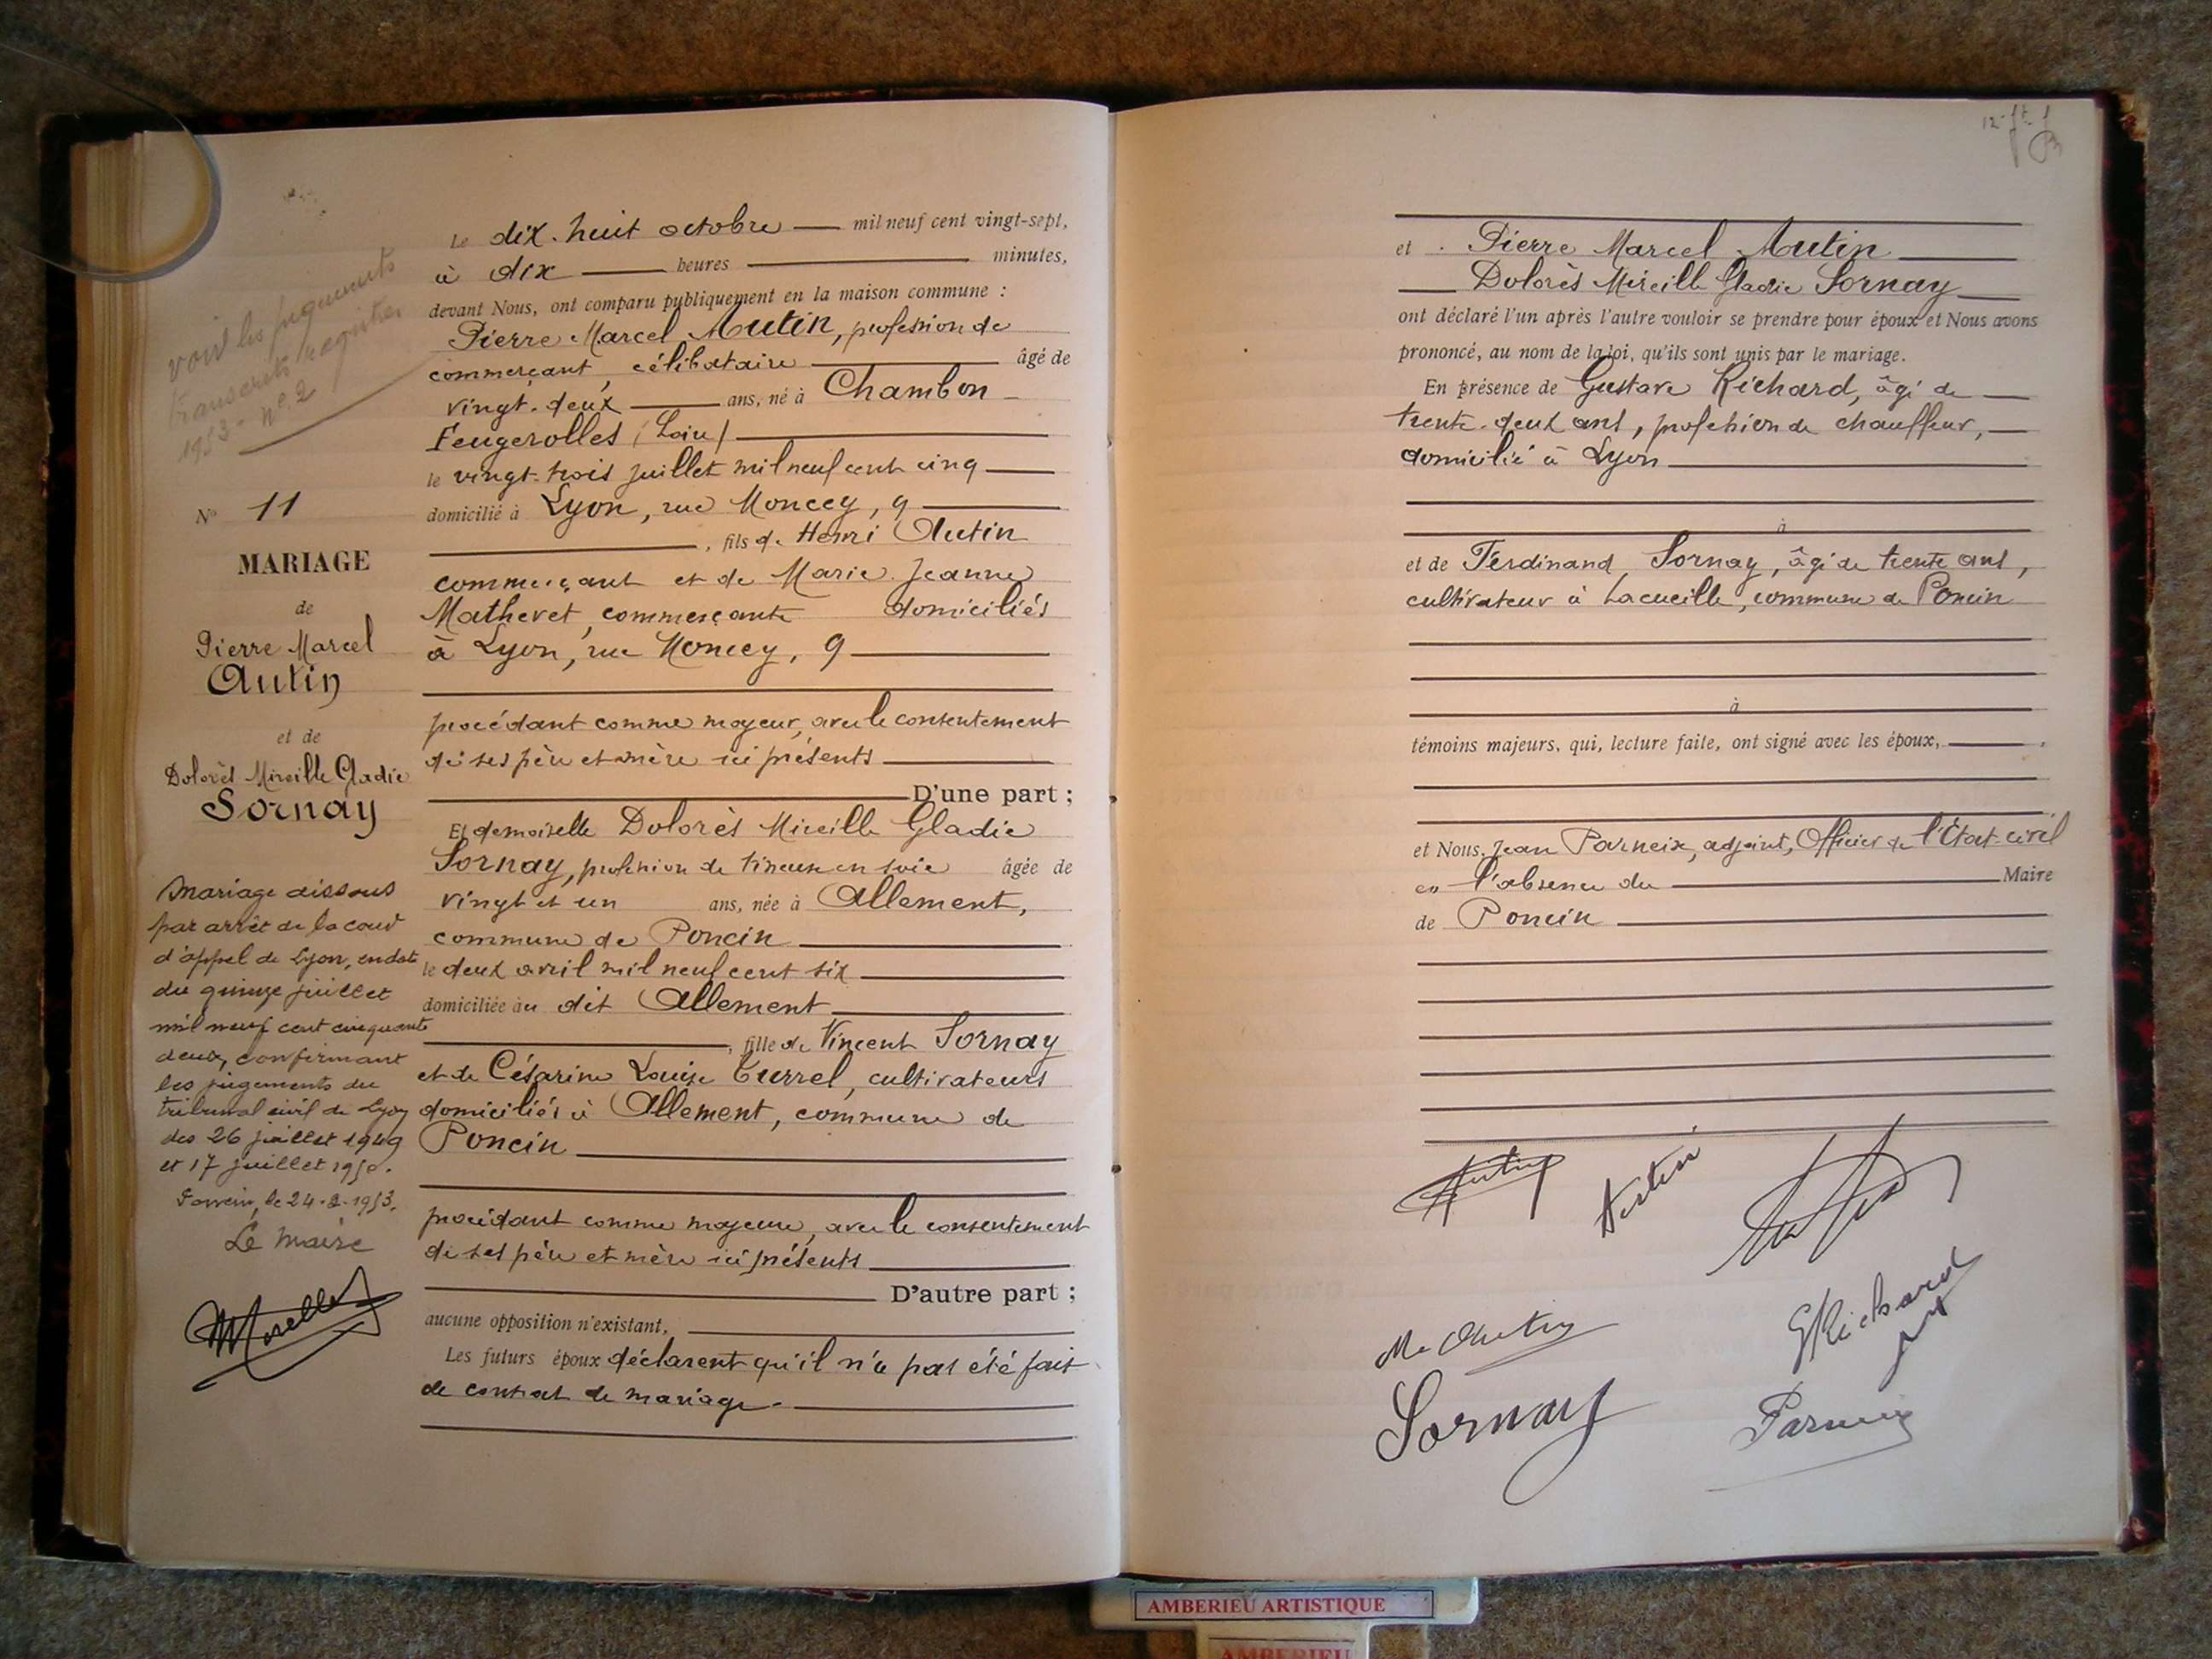 voir les jugements
transcrits registre
1953 - n° 2
N° 11
MARIAGE
de
Pierre Marcel
Autin
et de
Dolorès Mireille Gladie
Sornay
Mariage dissous
par arrêt de la cour
d'appel de Lyon, en date
du quinze juillet
mil neuf cent cinquante
deux, confirmant
les jugements du
tribunal civil de Lyon
des 26 juillet 1949
et 17 juillet 1950.
Poncin, le 24-2-1953.
Le Maire
Le dix-huit octobre mil neuf cent vingt-sept,
à dix heures minutes,
devant Nous, ont comparu publiquement en la maison commune :
Pierre Marcel Autin, profession de
commerçant, célibataire âgé de
vingt-deux ans, né à Chambon
Feugerolles (Loire)
le vingt-trois juillet mil neuf cent cinq
domicilié à Lyon, rue Moncey, 9
, fils de Henri Autin
commerçant et de Marie Jeanne
Mathevet, commerçante domiciliés
à Lyon, rue Moncey, 9
procédant comme majeur, avec le consentement
de ses père et mère ici présents
D'une part ;
Et demoiselle Dolorès Mireille Gladie
Sornay, profession de tisseuse en soie âgée de
vingt et un ans, née à Allement,
commune de Poncin
le deux avril mil neuf cent six
domiciliée au dit Allement
, fille de Vincent Sornay
et de Césarine Louise Currel, cultivateurs
domiciliés à Allement, commune de
Poncin
procédant comme majeure, avec le consentement
de ses père et mère ici présents
D'autre part ;
aucune opposition n'existant,
Les futurs époux déclarent qu'il n'a pas été fait
de contrat de mariage.
et Pierre Marcel Autin
Dolorès Mireille Gladie Sornay
ont déclaré l'un après l'autre vouloir se prendre pour époux et Nous avons
prononcé, au nom de la loi, qu'ils sont unis par le mariage.
En présence de Gustave Richard, âgé de
trente-deux ans, profession de chauffeur,
domicilié à Lyon
à
et de Ferdinand Sornay, âgé de trente ans,
cultivateur à Lacueille, commune de Poncin
à
témoins majeurs, qui, lecture faite, ont signé avec les époux,
et Nous, Jean Parneix, adjoint, Officier de l'État-civil
en l'absence du Maire
de Poncin
Autin
M. Autin
GRichard
Sornay
Parneix
AMBERIEU ARTISTIQUE
AMBERIEU